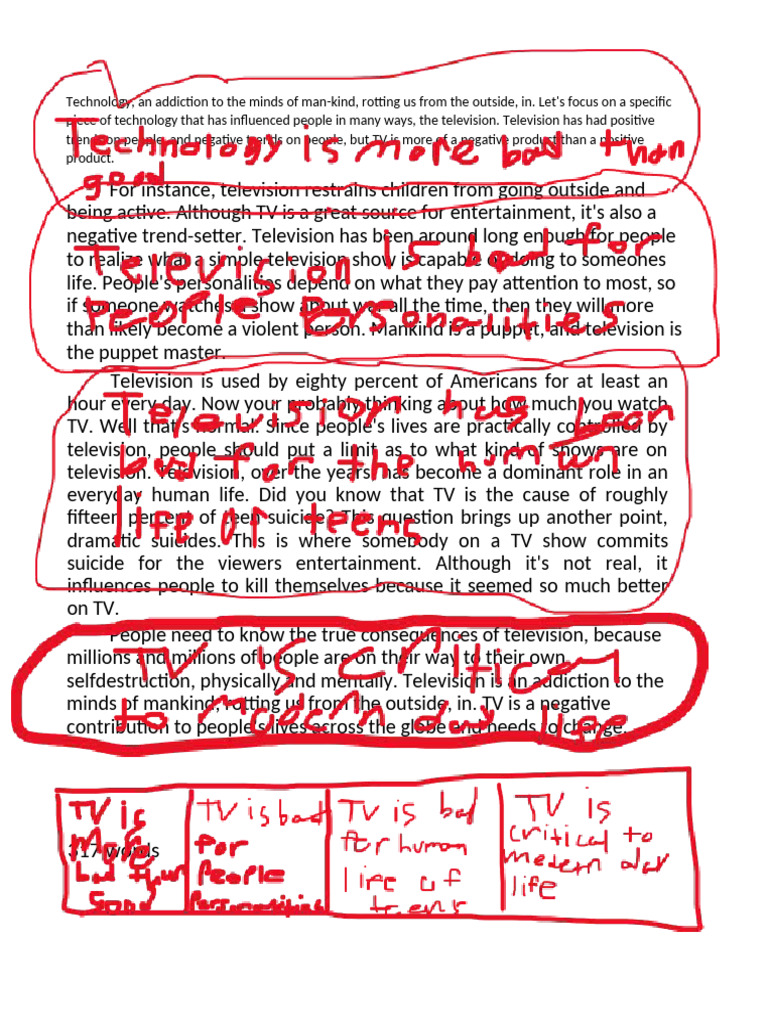 Technology, an addiction to the minds of man-kind, rotting us from the outside, in. Let's focus on a specific
piece of technology that has influenced people in many ways, the television. Television has had positive
trends on people, and negative trends on people, but TV is more of a negative product than a positive
product.
Technology is more bad than
good
For instance, television restrains children from going outside and
being active. Although TV is a great source for entertainment, it's also a
negative trend-setter. Television has been around long enough for people
to realize what a simple television show is capable of doing to someones
life. People's personalities depend on what they pay attention to most, so
if someone watches a show about war all the time, then they will more
than likely become a violent person. Mankind is a puppet, and television is
the puppet master.
Television is bad for
People Personalities
Television is used by eighty percent of Americans for at least an
hour every day. Now your probably thinking about how much you watch
TV. Well that's normal. Since people's lives are practically controlled by
television, people should put a limit as to what kind of shows are on
television. Television, over the years, has become a dominant role in an
everyday human life. Did you know that TV is the cause of roughly
fifteen percent of teen suicide? This question brings up another point,
dramatic suicides. This is where somebody on a TV show commits
suicide for the viewers entertainment. Although it's not real, it
influences people to kill themselves because it seemed so much better
on TV.
Television has bean
bad for the human
life of teens
People need to know the true consequences of television, because
millions and millions of people are on their way to their own
selfdestruction, physically and mentally. Television is an addiction to the
minds of mankind, rotting us from the outside, in. TV is a negative
contribution to people's lives across the globe and needs to change.
TV is critical
to modern day life
317 words
TV is
more
bad than
good
TV is bad
for
People
Personalities
TV is bad
for human
life of
teens
TV is
critical to
modern day
life